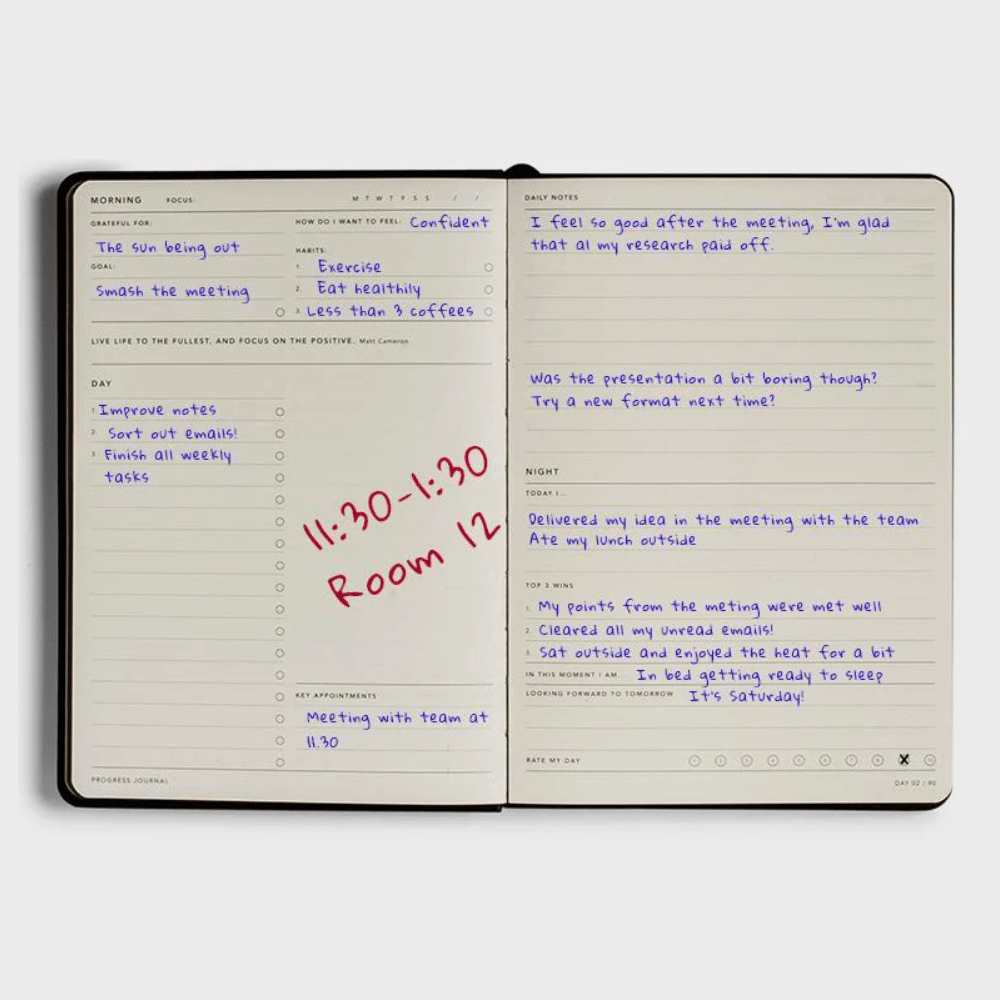 MORNING FOCUS: M T W T F S S / /
GRATEFUL FOR:
The sun being out
GOAL:
Smash the meeting
HOW DO I WANT TO FEEL: Confident
HABITS:
1. Exercise
2. Eat healthily
3. Less than 3 coffees
LIVE LIFE TO THE FULLEST, AND FOCUS ON THE POSITIVE. Matt Cameron
DAY
1 Improve notes
2. Sort out emails!
3 Finish all weekly
tasks
11:30-1:30
Room 12
KEY APPOINTMENTS
Meeting with team at
11.30
PROGRESS JOURNAL
DAILY NOTES
I feel so good after the meeting, I'm glad
that al my research paid off.
Was the presentation a bit boring though?
Try a new format next time?
NIGHT
TODAY I...
Delivered my idea in the meeting with the team
Ate my lunch outside
TOP 3 WINS
1. My points from the meting were met well
2. Cleared all my unread emails!
3. Sat outside and enjoyed the heat for a bit
IN THIS MOMENT I AM... In bed getting ready to sleep
LOOKING FORWARD TO TOMORROW It's Saturday!
RATE MY DAY X
DAY 02 / 90